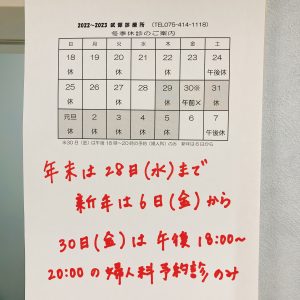 2022～2023 診療所 （TEL075-414-1118）
冬季休診のご案内
日 月 火 水 木 金 土
18 19 20 21 22 23 24
休 休 午後休
25 26 27 28 29 30※ 31
休 休 午前× 休
元旦 2 3 4 5 6 7
休 休 休 休 休 午後休
年末は28日(水)まで
新年は6日(金)から
30日(金)は午後18:00～
20:00の婦人科予約診のみ